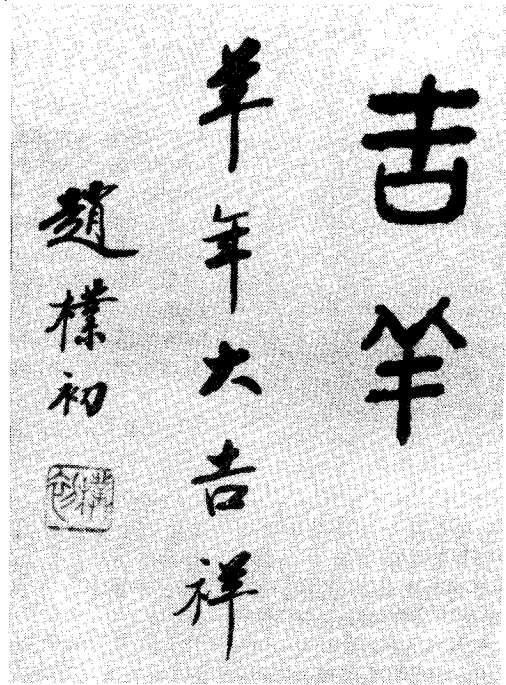 吉羊
羊年大吉祥
趙樸初
樸初